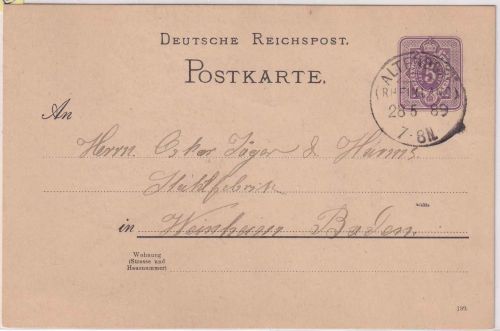 DEUTSCHE REICHSPOST.
POSTKARTE.
5
28 5 89
7-8N.
An
Herrn Oskar Jäger &
in Weinheim Baden.
Wohnung
(Strasse und
Hausnummer)